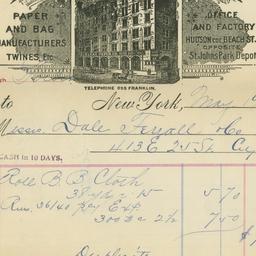 PAPER
AND BAG
MANUFACTURERS
TWINES, Etc
OFFICE
AND FACTORY
HUDSON and BEACH ST.
OPPOSITE
St. Johns Park Depot
TELEPHONE 095 FRANKLIN.
to New-York, May 1
Messrs. Dale Ferrall & Co
413 E 25 St City
CASH in 10 DAYS,
Roll B. B Cloth
38 15 5 70
36/40 300 2½ 7 50
$1
Duplicate